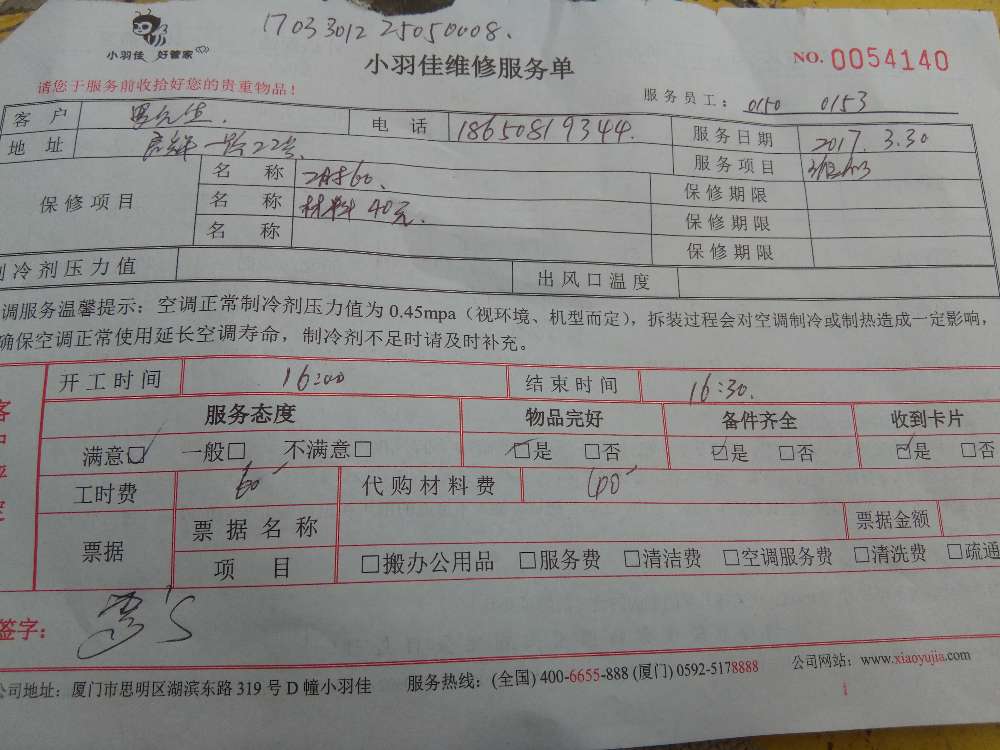 17033012 25050008.
小羽佳 好管家
小羽佳维修服务单
NO. 0054140
请您于服务前收拾好您的贵重物品！
服务员工： 0150 0153
客 户 电 话 18650819344. 服务日期 2017. 3.30
地 址 一路22号 服务项目
保修项目 名 称 工时60、 保修期限
名 称 材料 40元. 保修期限
名 称 保修期限
制冷剂压力值 出风口温度
调服务温馨提示：空调正常制冷剂压力值为 0.45mpa（视环境、机型而定），拆装过程会对空调制冷或制热造成一定影响，
确保空调正常使用延长空调寿命，制冷剂不足时请及时补充。
开工时间 16:00 结束时间 16:30.
服务态度 物品完好 备件齐全 收到卡片
满意☑ 一般□ 不满意□ ☑是 □否 ☑是 □否 ☑是 □否
工时费 60 代购材料费
票据 票据名称 票据金额
项 目 □搬办公用品 □服务费 □清洁费 □空调服务费 □清洗费 □疏通
签字：
公司地址：厦门市思明区湖滨东路 319 号 D 幢小羽佳 服务热线：(全国) 400-6655-888 (厦门) 0592-5178888 公司网站：www.xiaoyujia.com